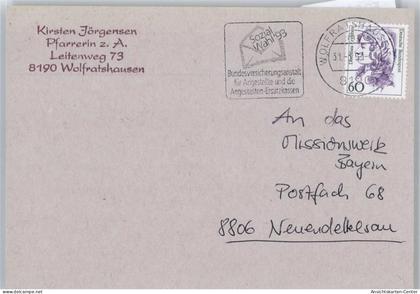 Kirsten Jörgensen
Pfarrerin z. A.
Leitenweg 73
8190 Wolfratshausen
Sozial
Wahl '93
Bundesversicherungsanstalt
für Angestellte und die
Angestellten-Ersatzkassen
WOLFRATSHAUSEN
60
An das
Missionswerk
Bayern
Postfach 68
8806 Neuendettelsau
Ansichtskarten-Center